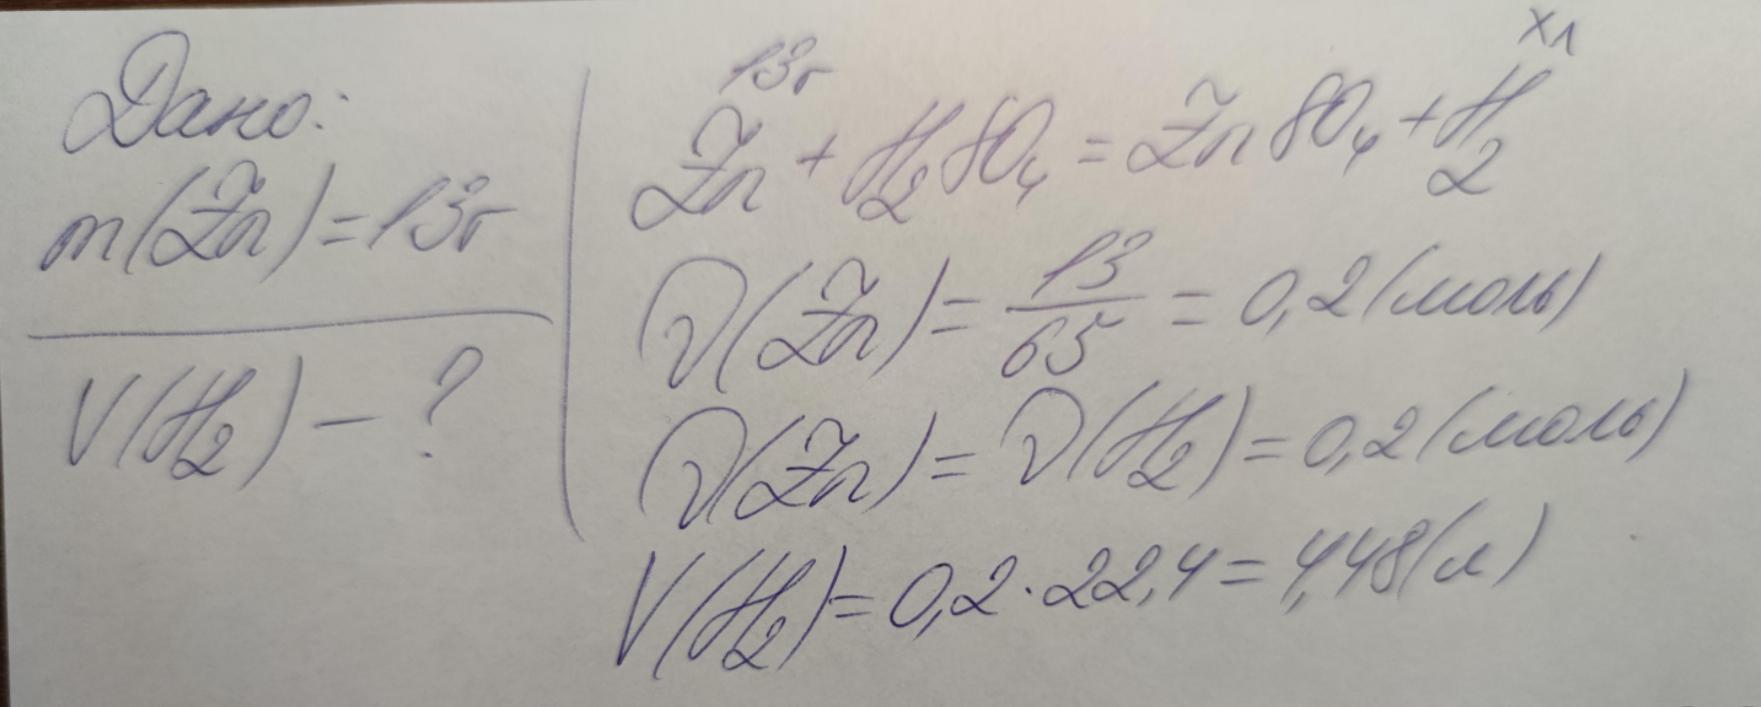 Дано:
m(Zn)=13г
V(H₂) – ?
13г x л
Zn + H₂SO₄ = ZnSO₄ + H₂
ν(Zn) = 13/65 = 0,2 (моль)
ν(Zn) = ν(H₂) = 0,2 (моль)
V(H₂) = 0,2 · 22,4 = 4,48 (л)